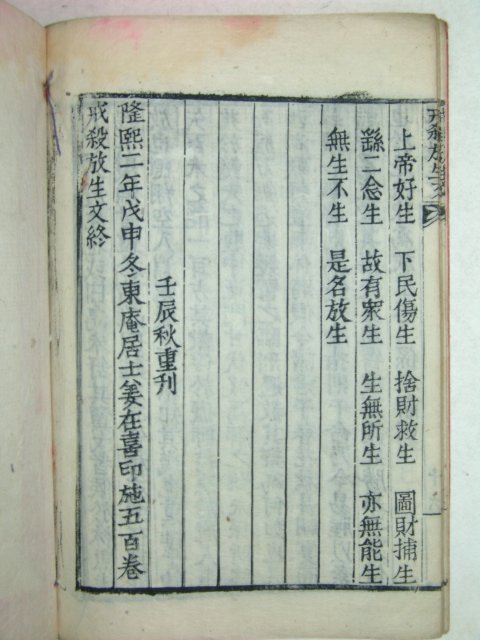 戒殺放生文
上帝好生 下民傷生 捨財救生 圖財捕生
繇二念生 故有衆生 生無所生 亦無能生
無生不生 是名放生
壬辰秋重刋
隆熙二年戊申冬東庵居士姜在喜印施五百卷
戒殺放生文終